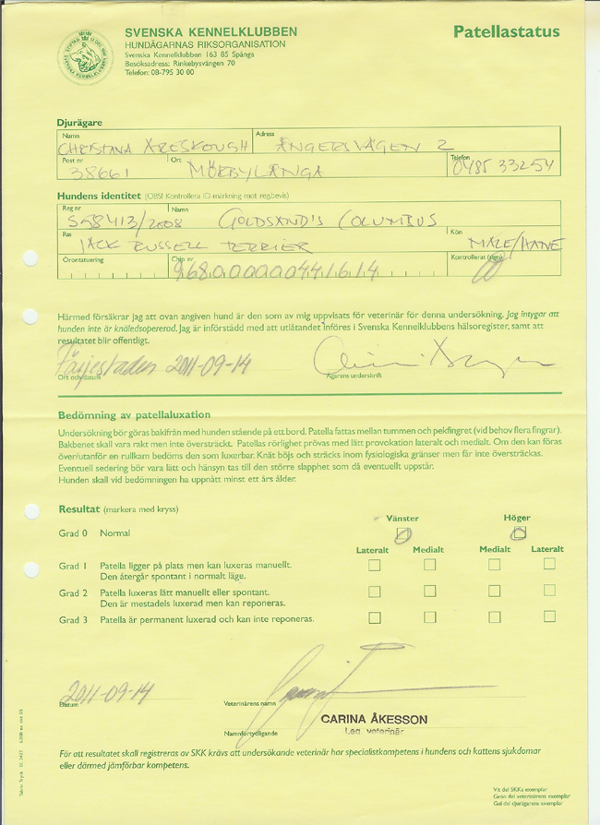 SVENSKA KENNELKLUBBEN
HUNDÄGARNAS RIKSORGANISATION
Svenska Kennelklubben 163 85 Spånga
Besöksadress: Rinkebysvängen 70
Telefon: 08-795 30 00
Patellastatus
Djurägare
Namn Adress
CHRISTINA ARESKOUGH ÅNGERSVÄGEN 2
Post nr Ort Telefon
38661 MÖRBYLÅNGA 0485 33254
Hundens identitet (OBS! Kontrollera ID märkning mot reg.bevis)
Reg nr Namn
S58413/2008 GOLDSAND'S COLUMBUS
Ras Kön
JACK RUSSELL TERRIER MALE/HANE
Örontatuering Chip nr Kontrollerat (sign)
968000004441614
Härmed försäkrar jag att ovan angiven hund är den som av mig uppvisats för veterinär för denna undersökning. Jag intygar att
hunden inte är knäledsopererad. Jag är införstådd med att utlåtandet införes i Svenska Kennelklubbens hälsoregister, samt att
resultatet blir offentligt.
Färjestaden 2011-09-14
Ort och datum Ägarens underskrift
Bedömning av patellaluxation
Undersökning bör göras bakifrån med hunden stående på ett bord. Patella fattas mellan tummen och pekfingret (vid behov flera fingrar).
Bakbenet skall vara rakt men inte översträckt. Patellas rörlighet prövas med lätt provokation lateralt och medialt. Om den kan föras
över/utanför en rullkam bedöms den som luxerbar. Knät böjs och sträcks inom fysiologiska gränser men får inte översträckas.
Eventuell sedering bör vara lätt och hänsyn tas till den större slapphet som då eventuellt uppstår.
Hunden skall vid bedömningen ha uppnått minst ett års ålder.
Resultat (markera med kryss) Vänster Höger
Grad 0 Normal
Lateralt Medialt Medialt Lateralt
Grad 1 Patella ligger på plats men kan luxeras manuellt.
Den återgår spontant i normalt läge.
Grad 2 Patella luxeras lätt manuellt eller spontant.
Den är mestadels luxerad men kan reponeras.
Grad 3 Patella är permanent luxerad och kan inte reponeras.
2011-09-14
Datum Veterinärens namn
CARINA ÅKESSON
Leg. veterinär
Namnförtydligande
För att resultatet skall registreras av SKK krävs att undersökande veterinär har specialistkompetens i hundens och kattens sjukdomar
eller därmed jämförbar kompetens.
Vit del SKKs exemplar
Grön del veterinärens exemplar
Gul del djurägarens exemplar